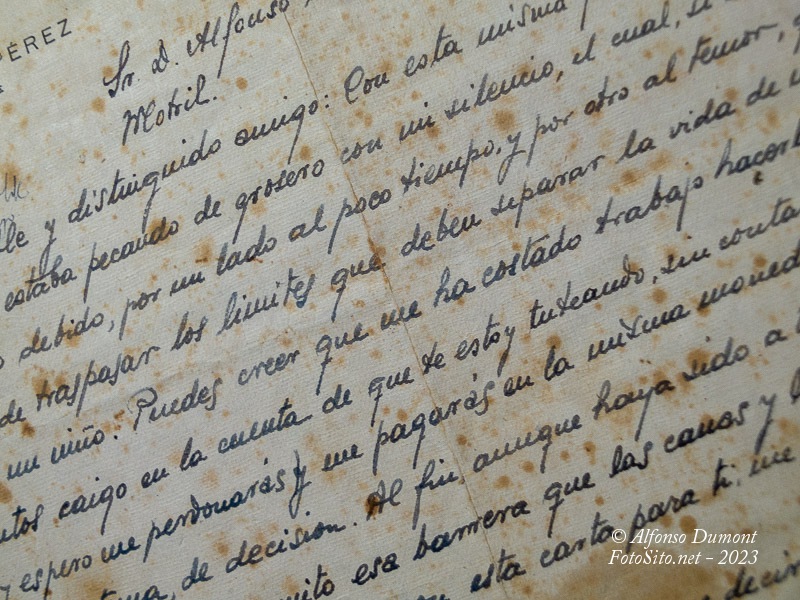 PÉREZ
Sr. D. Alfonso
Motril.
y distinguido amigo: Con esta misma
estaba pecando de grosero con mi silencio, el cual, si
debido, por un lado al poco tiempo, y por otro al temor,
de traspasar los limites que deben separar la vida de
un niño. Puedes creer que me ha costado trabajo hacer
caigo en la cuenta de que te estoy tuteando, sin contar
y espero me perdonarás y me pagarás en la misma moned
de decision. Al fin, aunque haya sido a
esa barrera que las canas y
esta carta para ti, me
decir
© Alfonso Dumont
FotoSito.net - 2023